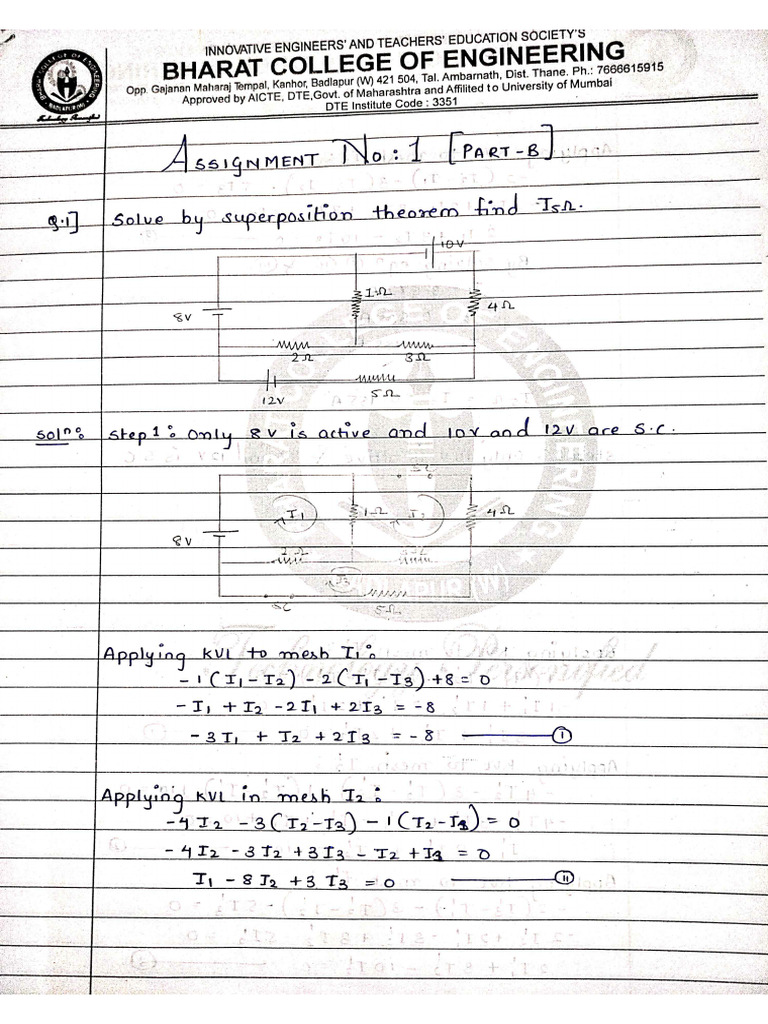 INNOVATIVE ENGINEERS' AND TEACHERS' EDUCATION SOCIETY'S
BHARAT COLLEGE OF ENGINEERING
Opp. Gajanan Maharaj Tempal, Kanhor, Badlapur (W) 421 504, Tal. Ambarnath, Dist. Thane. Ph.: 7666615915
Approved by AICTE, DTE,Govt. of Maharashtra and Affilited to University of Mumbai
DTE Institute Code : 3351
ASSIGNMENT NO: 1 [PART-B]
Q.1] Solve by superposition theorem find I5Ω.
10V
1Ω
4Ω
8V
2Ω 3Ω
5Ω
12V
Solⁿ: Step 1: Only 8V is active and 10V and 12V are S.C.
SC
I1 1Ω I2 4Ω
8V
2Ω
I3
SC 5Ω
Applying KVL to mesh I1:
-1(I1-I2) -2(I1-I3) +8 = 0
-I1 + I2 -2I1 + 2I3 = -8
-3I1 + I2 + 2I3 = -8 (I)
Applying KVL in mesh I2:
-4I2 -3(I2-I3) -1(I2-I3) = 0
-4I2 -3I2 +3I3 -I2 +I3 = 0
I1 -8I2 +3I3 = 0 (II)